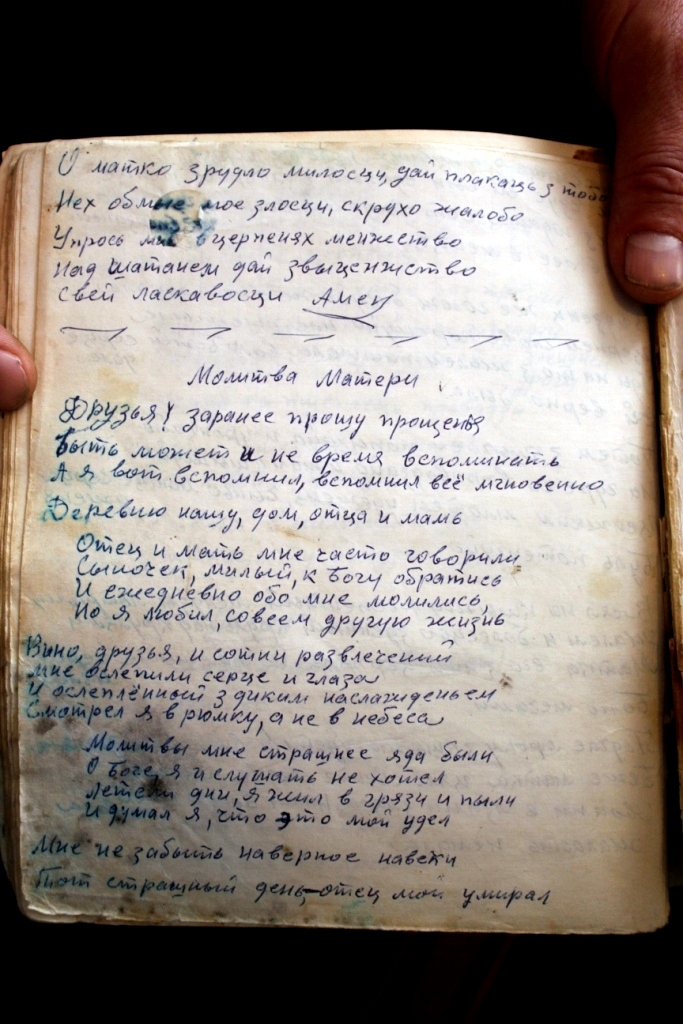 О матко зрудло милосци, дай плакаць з тобо
Нех обмые мое злосци, скрухо жалобо
Упрось мне в церпенях менжество
Над шатанем дай звыценжство
свей ласкавосци Амен
Молитва Матери
Друзья! заранее прошу прощенья
Быть может и не время вспоминать
А я вот вспомнил, вспомнил всё мгновенно
Деревню нашу, дом, отца и мать
Отец и мать мне часто говорили
Сыночек, милый, к Богу обратись
И ежедневно обо мне молились,
Но я любил, совсем другую жизнь
Вино, друзья, и сотни развлечений
Мне ослепили серце и глаза
И ослеплённый з диким наслажденьем
Смотрел я в рюмку, а не в небеса
Молитвы мне страшнее яда были
О Боге, я и слушать не хотел
Летели дни, я жил в грязи и пыли
И думал я, что это мой удел
Мне не забыть наверное навеки
Тот страшный день, отец мой умирал